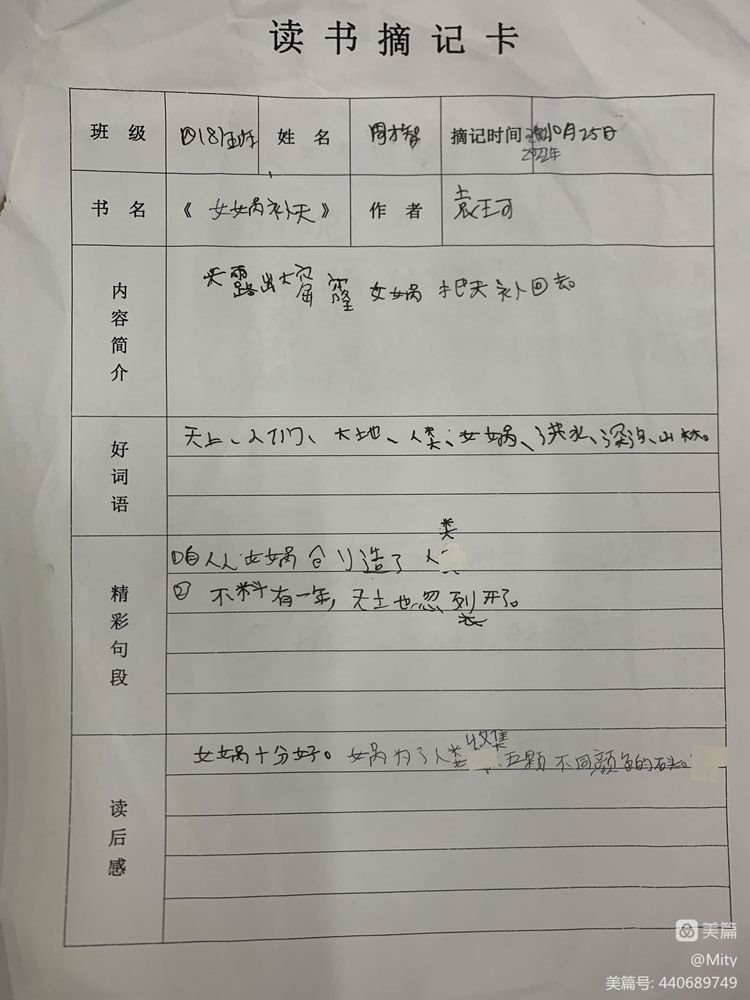 读书摘记卡
班级 四(8)班 姓名 周才智 摘记时间 10月25日
2022年
书名 《女娲补天》 作者 袁珂
内容简介 天露出大窟窿 女娲把天补回去。
好词语 天上、人们、大地、人类、女娲、洪水、深沟、山林。
精彩句段
类
①自从女娲创造了人
② 不料有一年,天土地忽列开了。
读后感
收集
女娲十分好。女娲为了人类 五颗不同颜色的石头。
美篇
@Mity
美篇号: 440689749